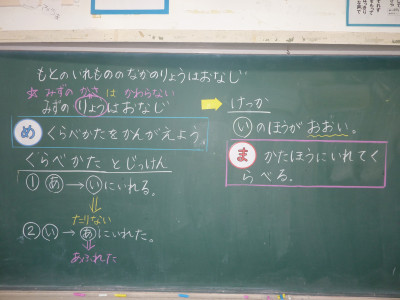 もとのいれもののなかのりょうはおなじ
☆ みずの かさ は かわらない
みずの りょう はおなじ
め くらべかたをかんがえよう。
くらべかた とじっけん
① あ → い にいれる。
⇓
たりない
② い → あ にいれた。
⇓
あふれた
けっか
い のほうが おおい。
ま かたほうにいれてく
らべる。